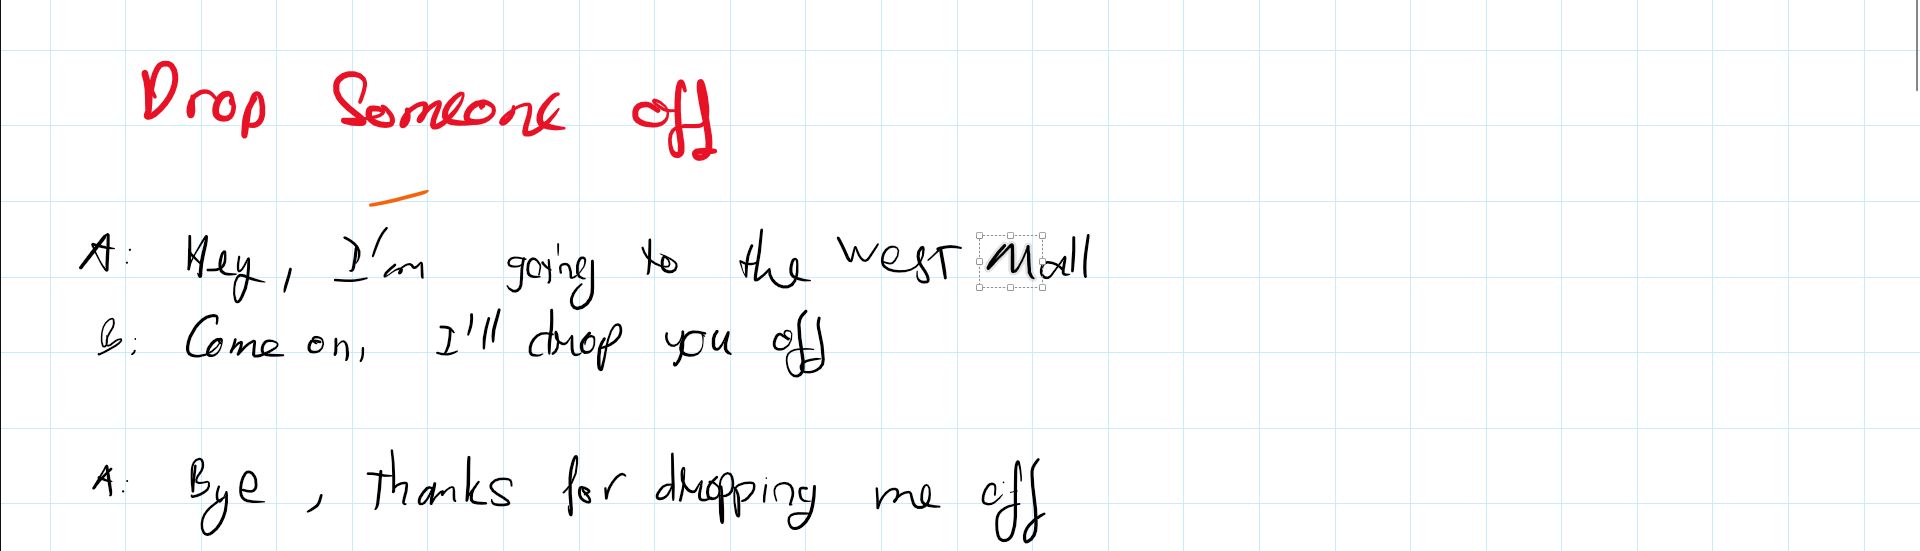 Drop Someone off
A: Hey, I'm going to the west Mall
B: Come on, I'll drop you off
A: Bye, thanks for dropping me off